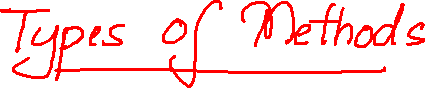 Types of Methods